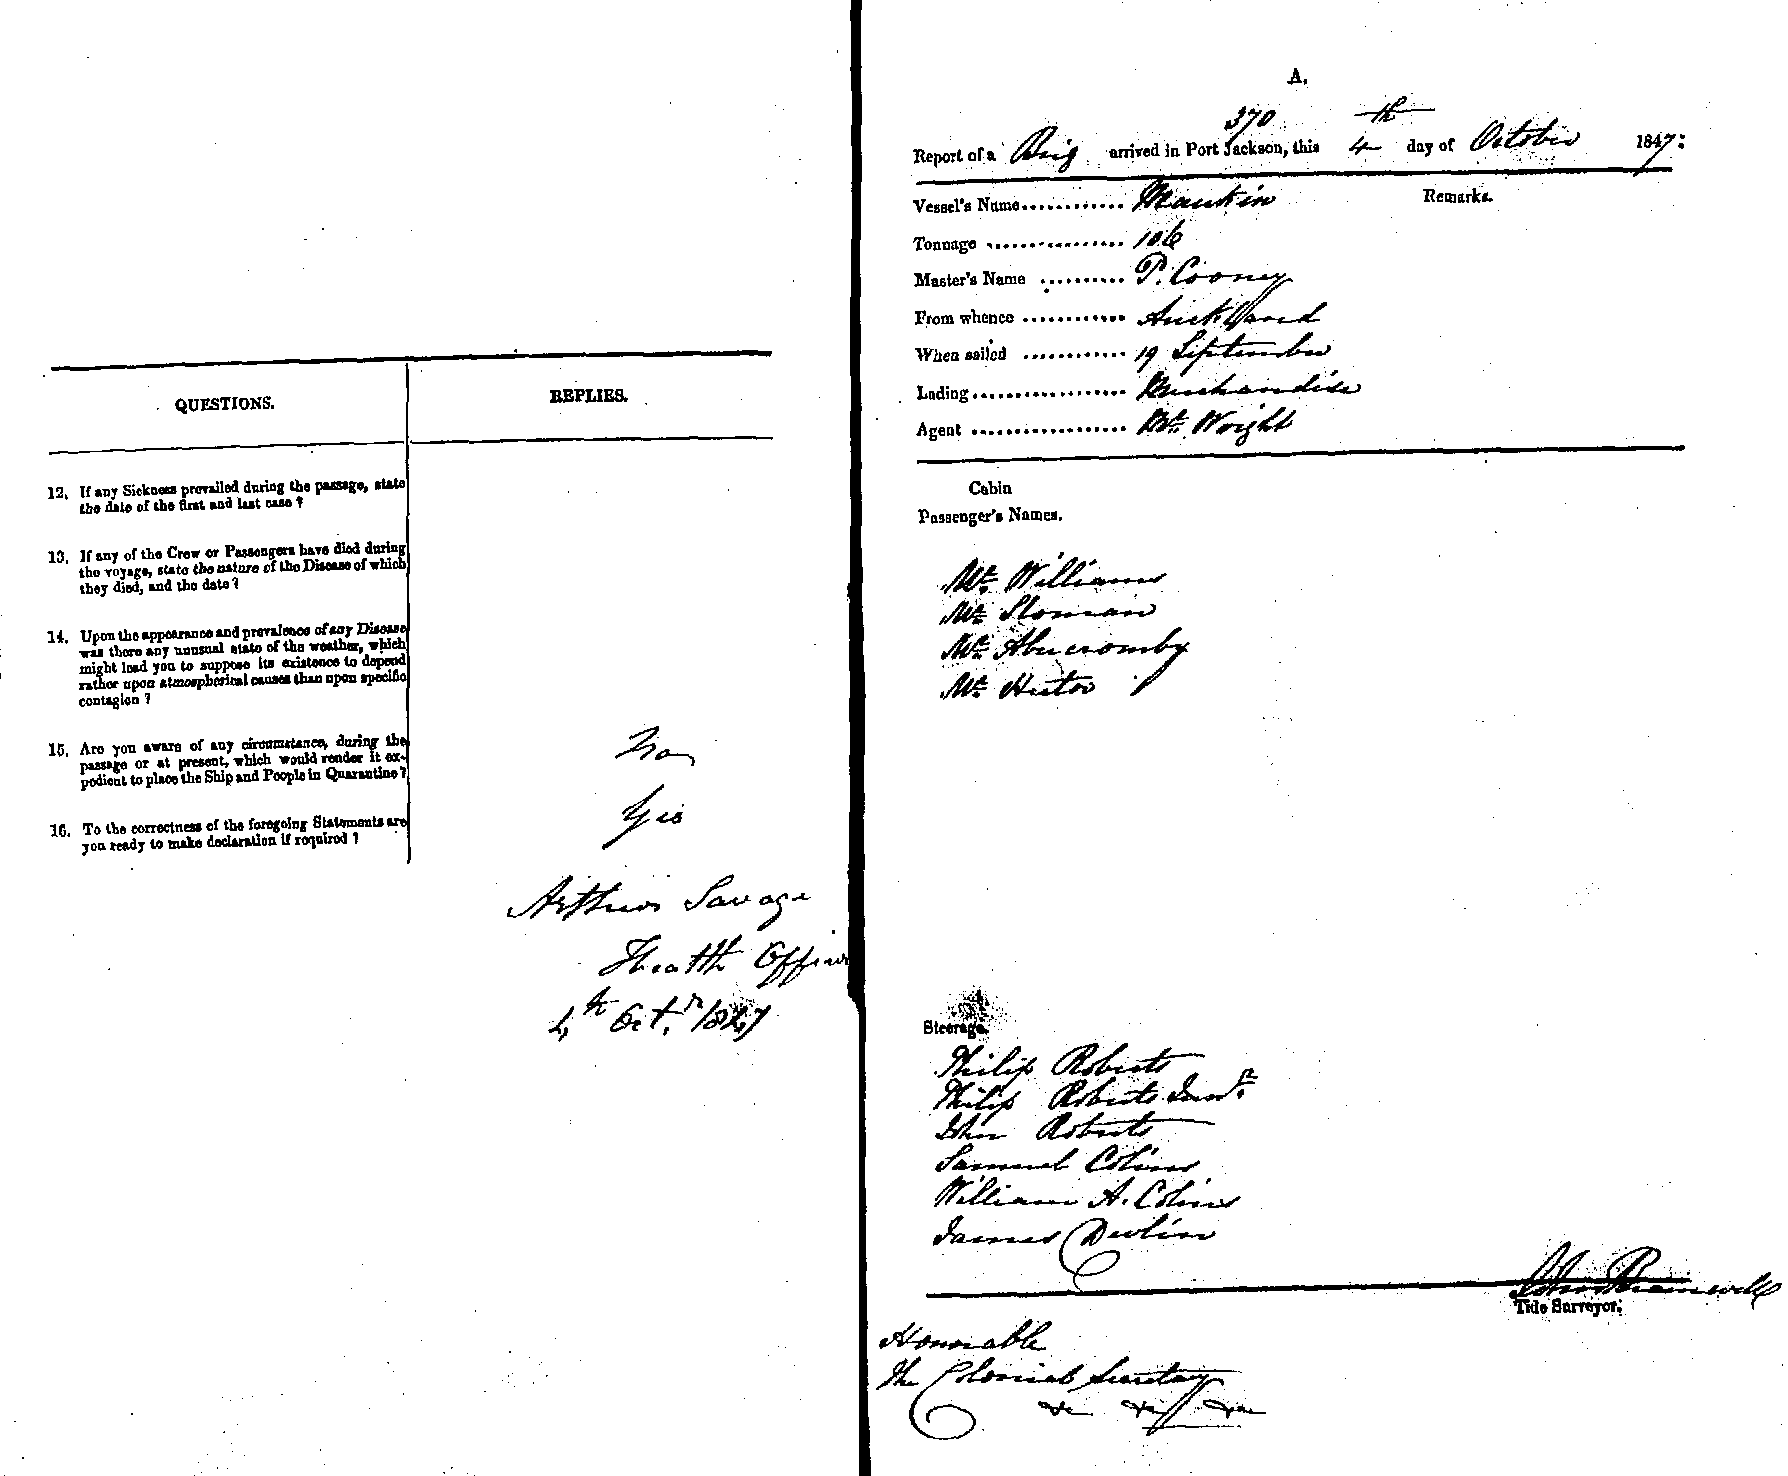 QUESTIONS.
REPLIES.
12. If any Sickness prevailed during the passage, state
the date of the first and last case ?
13. If any of the Crew or Passengers have died during
the voyage, state the nature of the Disease of which
they died, and the date ?
14. Upon the appearance and prevalence of any Disease
was there any unusual state of the weather, which
might lead you to suppose its existence to depend
rather upon atmospherical causes than upon specific
contagion ?
15. Are you aware of any circumstance, during the
passage or at present, which would render it ex-
pedient to place the Ship and People in Quarantine ?
No
16. To the correctness of the foregoing Statements are
you ready to make declaration if required ?
Yes
Arthur Savage
Health Officer
4th Octr. 1847
A.
370
Report of a Brig arrived in Port Jackson, this 4th day of October 1847:
Vessel's Name............ Maukin
Remarks.
Tonnage ................ 106
Master's Name .......... P. Cooney
From whence ............ Auckland
When sailed ............ 19 September
Lading.................. Merchandise
Agent .................. Mr. Wright
Cabin
Passenger's Names.
Mr. Williams
Mr. Sloman
Mr. Abercromby
Mr.
Steerage.
Philip Roberts
Philip Roberts Junr.
John Roberts
Samuel Colins
William A. Colins
James Devlin
John Bramwell
Tide Surveyor.
Honorable
The Colonial Secretary
&c &c &c